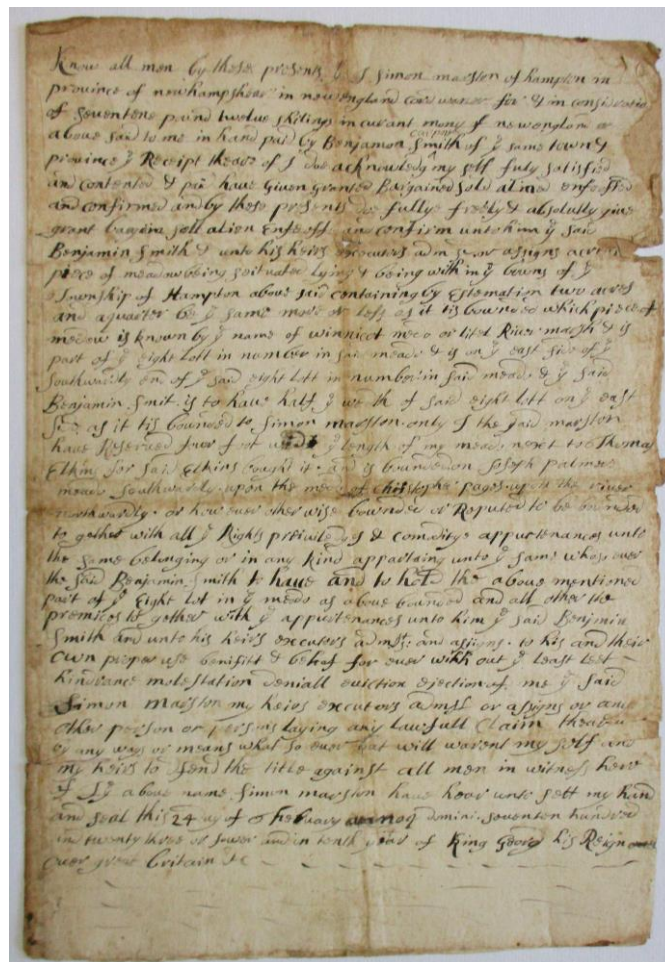 Know all men by these presents yt I Simon marston of hampton in
province of newhampshear in newengland cordwaner for & in consideratio
of Seventene pound twelve shilings in curant mony of newenglon or
above said to me in hand paid by Benjamon Smith of ye same town &
province ye Receipt theare of I doe acknowledg my self fully satisfied
and contented & paie have Given granted Bargained Sold alined enfeoffed
and confirmed and by these presents doe fullye freely & absolutly give
grant bargine sell alien Enfeoff and confirm unto him ye said
Benjamin Smith & unto his heirs executors adm or assigns a
piece of meadow being seituated lying & being with in ye bowns of ye
Township of Hampton above said containing by Estemation two acres
and a quarter be ye same more or less as it tis bounded which piece of
medow is known by ye name of winnicot or litel River marsh & is
part of ye eight Lott in number in said meads & is on ye east side of ye
Southwardly en of ye said eight lott in number in said mead & ye said
Benjamin Smit is to have half ye of said eight lott on ye east
as it tis bounded to Simon marston only I the said marston
have Reserved ye length of my mead next to Thomas
Elkins for said Elkins bought it and is bounded on Joseph palmers
mead Southwardly upon the mead of Christopher pages up to the river
northwardly or how ever other wise bownded or Reputed to be bounded
to gether with all ye Rights previledges & comoditys appurtenances unto
the same belonging or in any kind appartaing unto ye same whoso ever
the said Benjamin Smith to have and to hold the above mentioned
part of ye Eight Lot in ye meads as above bounded and all other the
premices to gether with ye appurtenances unto him ye said Benjmin
Smith and unto his heirs executors admsr: and assigns to his and their
own proper use benifitt & behaf for ever with out ye least Lett
hindrance molestation deniall eviction ejection of me ye said
Simon marston my heirs executors admsr or assigns or any
other person or persons laying any lawfull Claim theareu
by any ways or means what so ever that will warent my self and
my heirs to fend the title against all men in witness here
of I ye above name Simon marston have hear unto sett my hand
and seal this 24 ay of febuary domini seventen hundred
in twenty three or fower and in tenth year of King Georg his Reign
over great britain &c